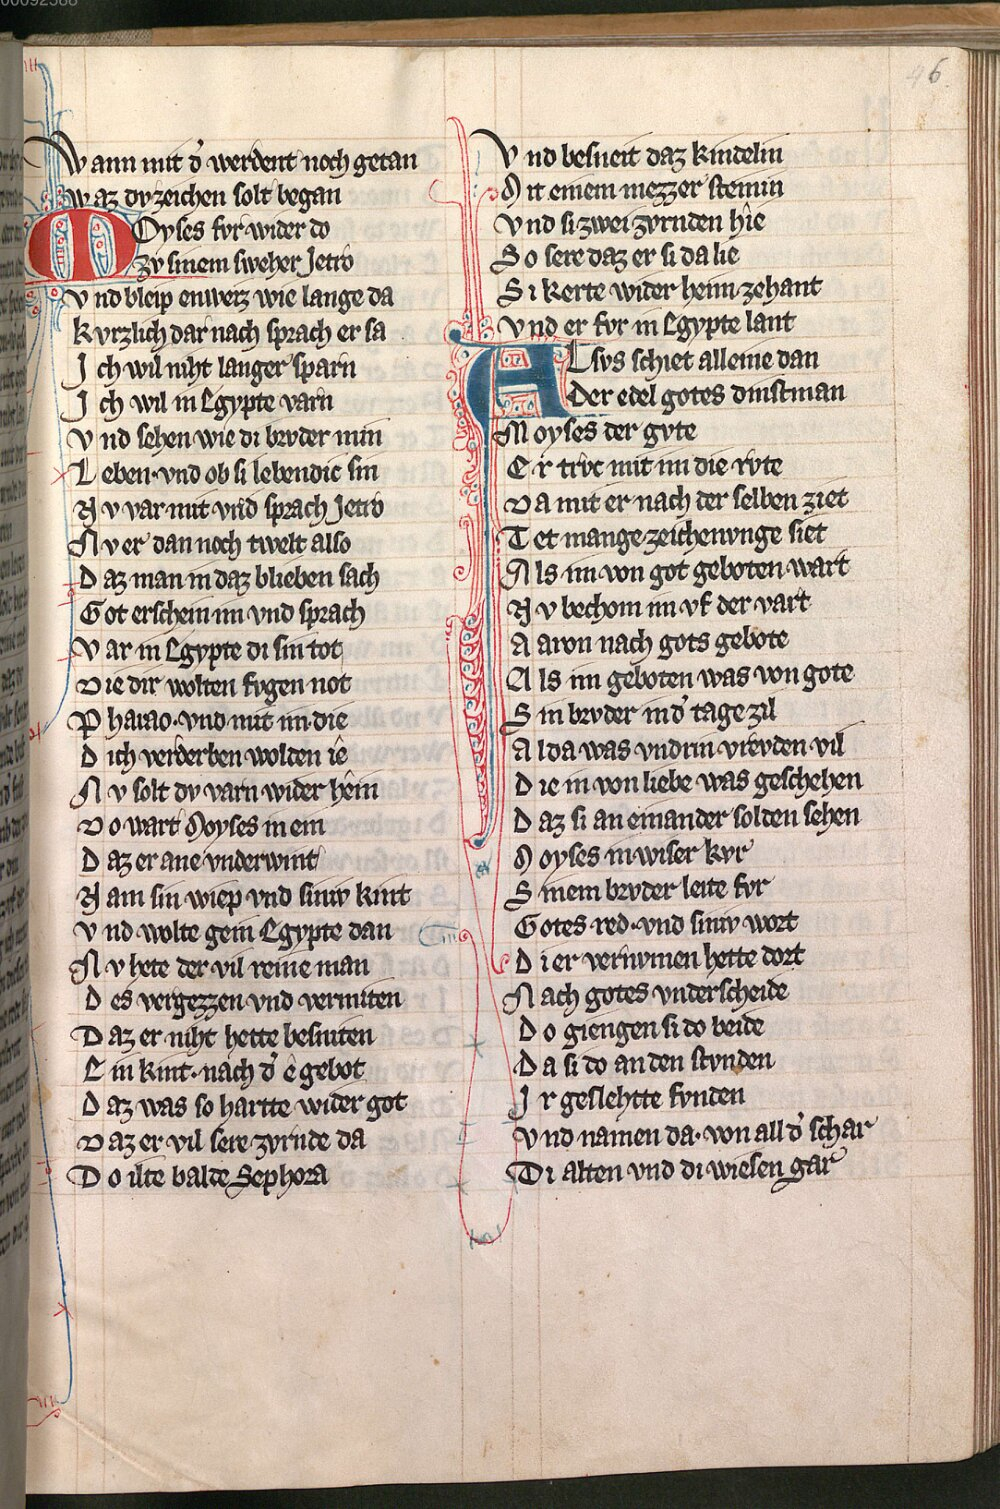 00092588
46
Wann mit d͛ werdent noch getan
waz dv zeichen solt began
Moyses fvr wider do
zv sinem sweher Jetro
Vnd bleip enweiz wie lange da
Kvrzlich dar nach sprach er sa
Ich wil niht langer sparn
Ich wil in Egypte varn
Vnd sehen wie di brvder min
Leben·vnd ob si lebendic sin
Nv var mit vrid sprach Jetro
Nv er dan noch twelt also
Daz man in daz blieben sach
Got erschein im vnd sprach
Var in Egypte di sin tot
Die dir wolten fvgen not
Pharao·vnd mit im die
Dich verderben wolden ie
Nv solt dv varn wider hein
Do wart Moyses in ein
Daz er ane vnderwint
Nam sin wiep vnd siniv kint
Vnd wolte gein Egypte dan
Nv hete der vil reine man
Des vergezzen vnd vermiten
Daz er niht hette besniten
Ein kint·nach d͛ e gebot
Daz was so hartte wider got
Daz er vil sere zvrnde da
Do ilte balde Sephora
Vnd besneit daz kindelin
Mit einem mezzer steinin
Vnd si zwei zvrnden hie
So sere daz er si da lie
Si kerte wider heim zehant
Vnd er fvr in Egypte lant
Alsvs schiet alleine dan
Der edel gotes dinstman
Moyses der gvte
Er trvc mit im die rvte
Da mit er nach der selben ziet
Tet mange zeichenvnge siet
Als im von got geboten wart
Nv bechom im vf der vart
Aaron nach gots gebote
Als im geboten was von gote
Sin brvder in d͛ tage zil
Alda was vndrin vrevden vil
Die in von liebe was geschehen
Daz si an einander solden sehen
Moyses in wiser kvr
Sinem brvder leite fvr
Gotes red·vnd siniv wort
Di er vernvmen hette dort
Nach gotes vnderscheide
Do giengen si do beide
Da si do an den stvnden
Ir geslehtte fvnden
Vnd namen da·von all d͛ schar
Di alten vnd di wiesen gar